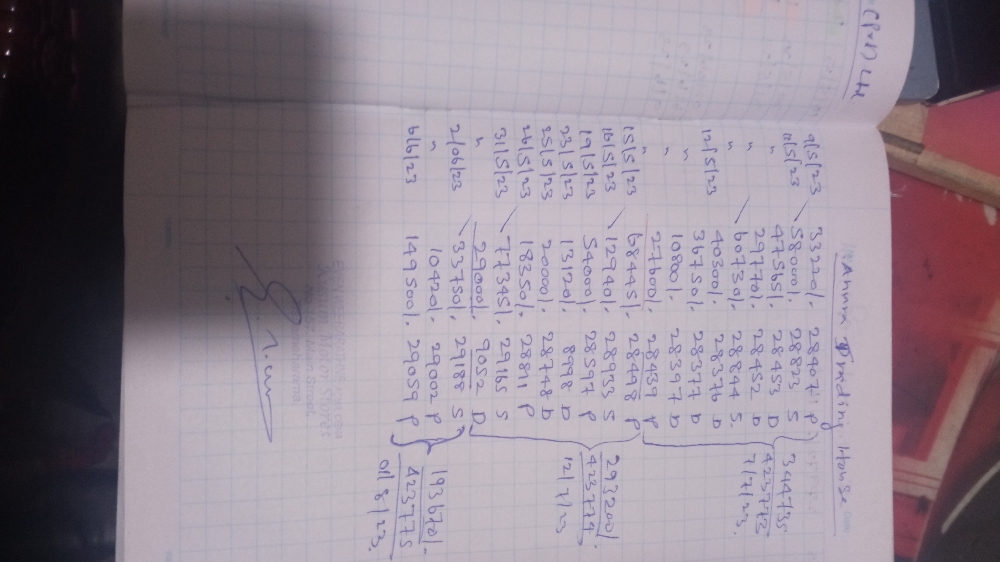 Annux Trading House (Pvt) Ltd
9/5/23 33220/. 28407 P
11/5/23 58000/. 28823 S 344735
" 47565/. 28453 D 423773
" 29770/. 28452 D 7/7/23.
" 60730/. 28844 S.
12/5/23 40300/. 28376 D
" 36750/. 28377 D
" 10800/. 28397 D
" 27600/. 28439 P
15/5/23 68445/. 28498 P
16/5/23 12940/. 28933 S 293200/.
19/5/23 54000/. 28597 P 423774
23/5/23 13120/. 8998 D 12/7/23
25/5/23 20000/. 28748 D
26/5/23 18350/. 28811 P
31/5/23 77345/. 29165 S
" 29000/. 9052 D
2/06/23 33750/. 29188 S
" 10420/. 29002 P 193670/-
6/6/23 149500/. 29059 P 423775
01/8/23.